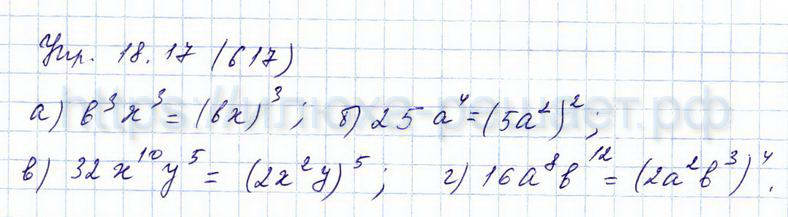 Упр. 18.17 (617)
а) b³x³ = (bx)³; б) 25a⁴ = (5a²)²;
в) 32x¹⁰y⁵ = (2x²y)⁵; г) 16a⁸b¹² = (2a²b³)⁴.